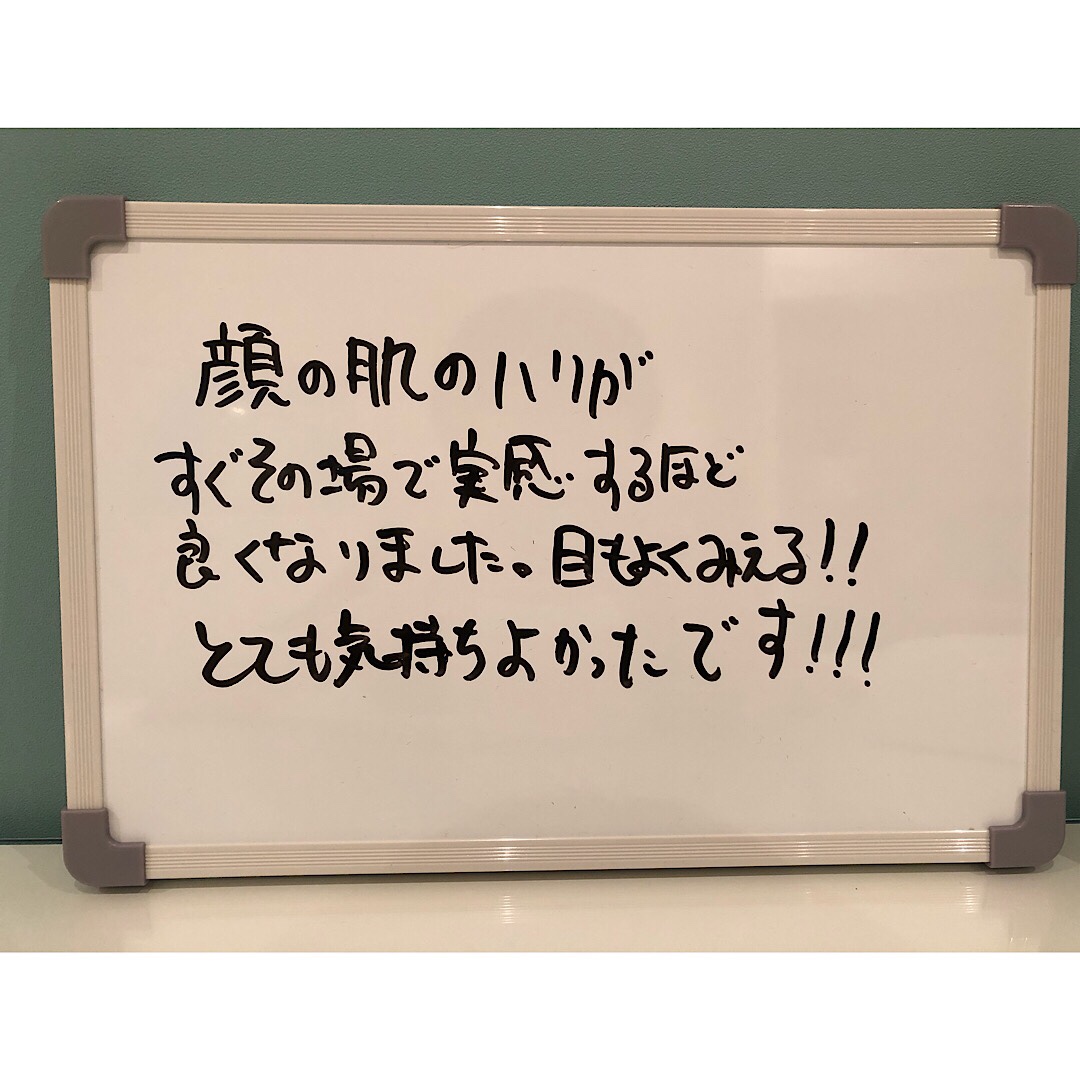 顔の肌のハリが
すぐその場で実感するほど
良くなりました。目もよくみえる!!
とても気持ちよかったです!!!